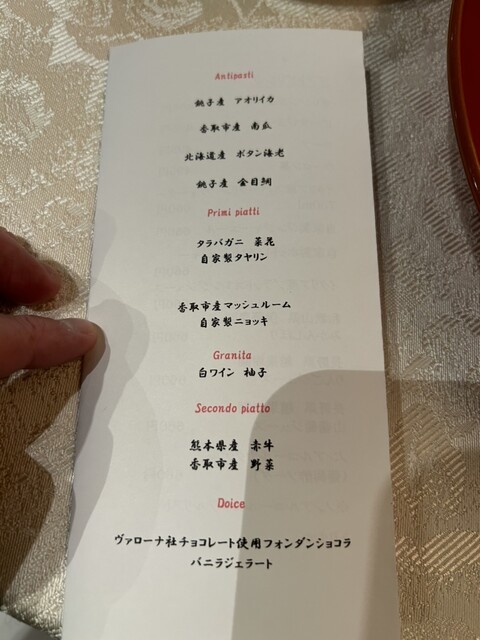 Antipasti
銚子産 アオリイカ
香取市産 南瓜
北海道産 ボタン海老
銚子産 金目鯛
Primi piatti
タラバガニ 菜花
自家製タヤリン
香取市産マッシュルーム
自家製ニョッキ
Granita
白ワイン 柚子
Secondo piatto
熊本県産 赤牛
香取市産 野菜
Dolce
ヴァローナ社チョコレート使用フォンダンショコラ
バニラジェラート